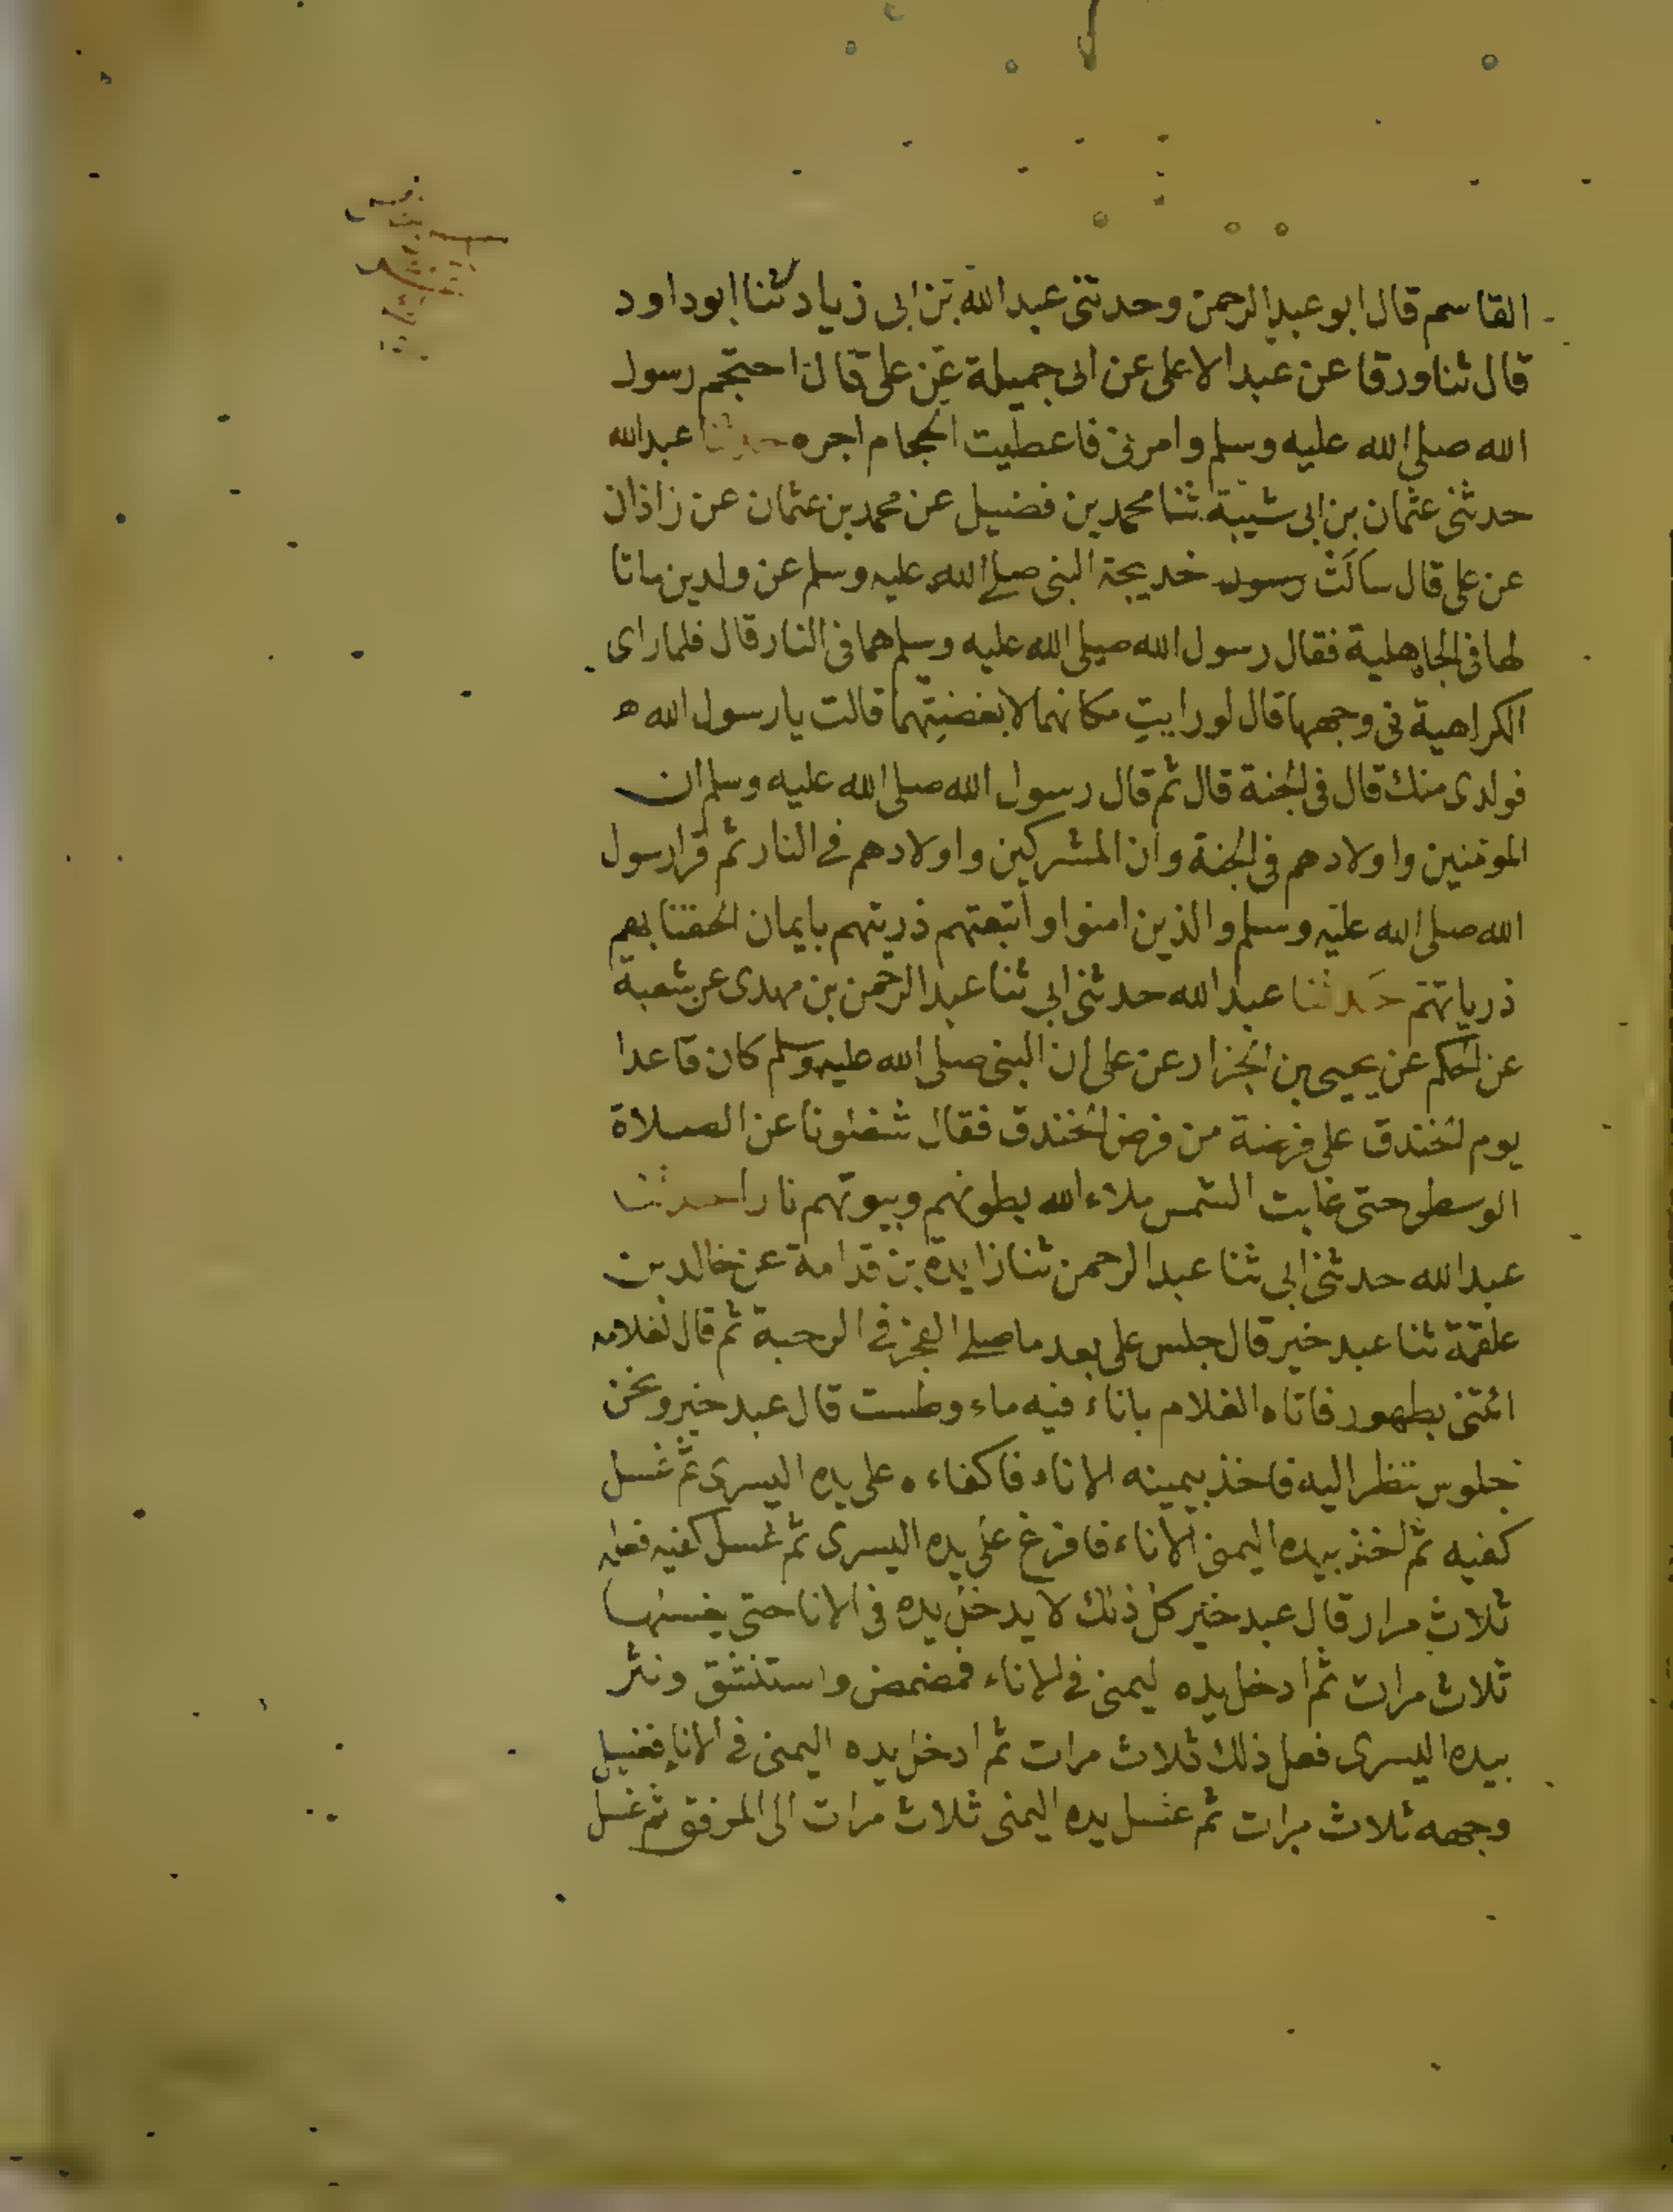 القاسم قال ابو عبد الرحمن وحدثنى عبد الله بن ابى زياد ثنا ابو داود
قال ثنا ورقا عن عبد الاعلى عن ابى جميلة عن على قال احتجم رسول
الله صلى الله عليه وسلم وامرنى فاعطيت الحجام اجره حدثنا عبد الله
حدثنى عثمان بن ابى شيبة ثنا محمد بن فضيل عن محمد بن عثمان عن زاذان
عن على قال سالت رسول خديجة النبى صلى الله عليه وسلم عن ولدين ماتا
لها فى الجاهلية فقال رسول الله صلى الله عليه وسلم هما فى النار قال فلما راى
الكراهية فى وجهها قال لو رايت مكانهما لابغضتهما قالت يا رسول الله
فولدى منك قال فى الجنة قال ثم قال رسول الله صلى الله عليه وسلم ان
المومنين واولادهم فى الجنة وان المشركين واولادهم فى النار ثم قرا رسول
الله صلى الله عليه وسلم والذين امنوا واتبعتهم ذريتهم بايمان الحقنا بهم
ذرياتهم حدثنا عبد الله حدثنى ابى ثنا عبد الرحمن بن مهدى عن شعبة
عن الحكم عن يحيى بن الجزار عن على ان النبى صلى الله عليه وسلم كان قاعدا
يوم الخندق على فرضة من فرض الخندق فقال شغلونا عن الصلاة
الوسطى حتى غابت الشمس ملاء الله بطونهم وبيوتهم نارا حدثنا
عبد الله حدثنى ابى ثنا عبد الرحمن ثنا زايدة بن قدامة عن خالد بن
علقمة ثنا عبد خير قال جلس على بعد ما صلى الفجر فى الرحبة ثم قال لغلامه
ائتنى بطهور فاتاه الغلام باناء فيه ماء وطست قال عبد خير ونحن
جلوس ننظر اليه فاخذ بيمينه الاناء فاكفاءه على يده اليسرى ثم غسل
كفيه ثم اخذ بيده اليمنى الاناء فافرغ على يده اليسرى ثم غسل كفيه فعله
ثلاث مرار قال عبد خير كل ذلك لا يدخل يده فى الانا حتى يغسلها
ثلاث مرات ثم ادخل يده اليمنى فى الاناء فمضمض واستنشق ونثر
بيده اليسرى فعل ذلك ثلاث مرات ثم ادخل يده اليمنى فى الاناء فغسل
وجهه ثلاث مرات ثم غسل يده اليمنى ثلاث مرات الى المرفق ثم غسل